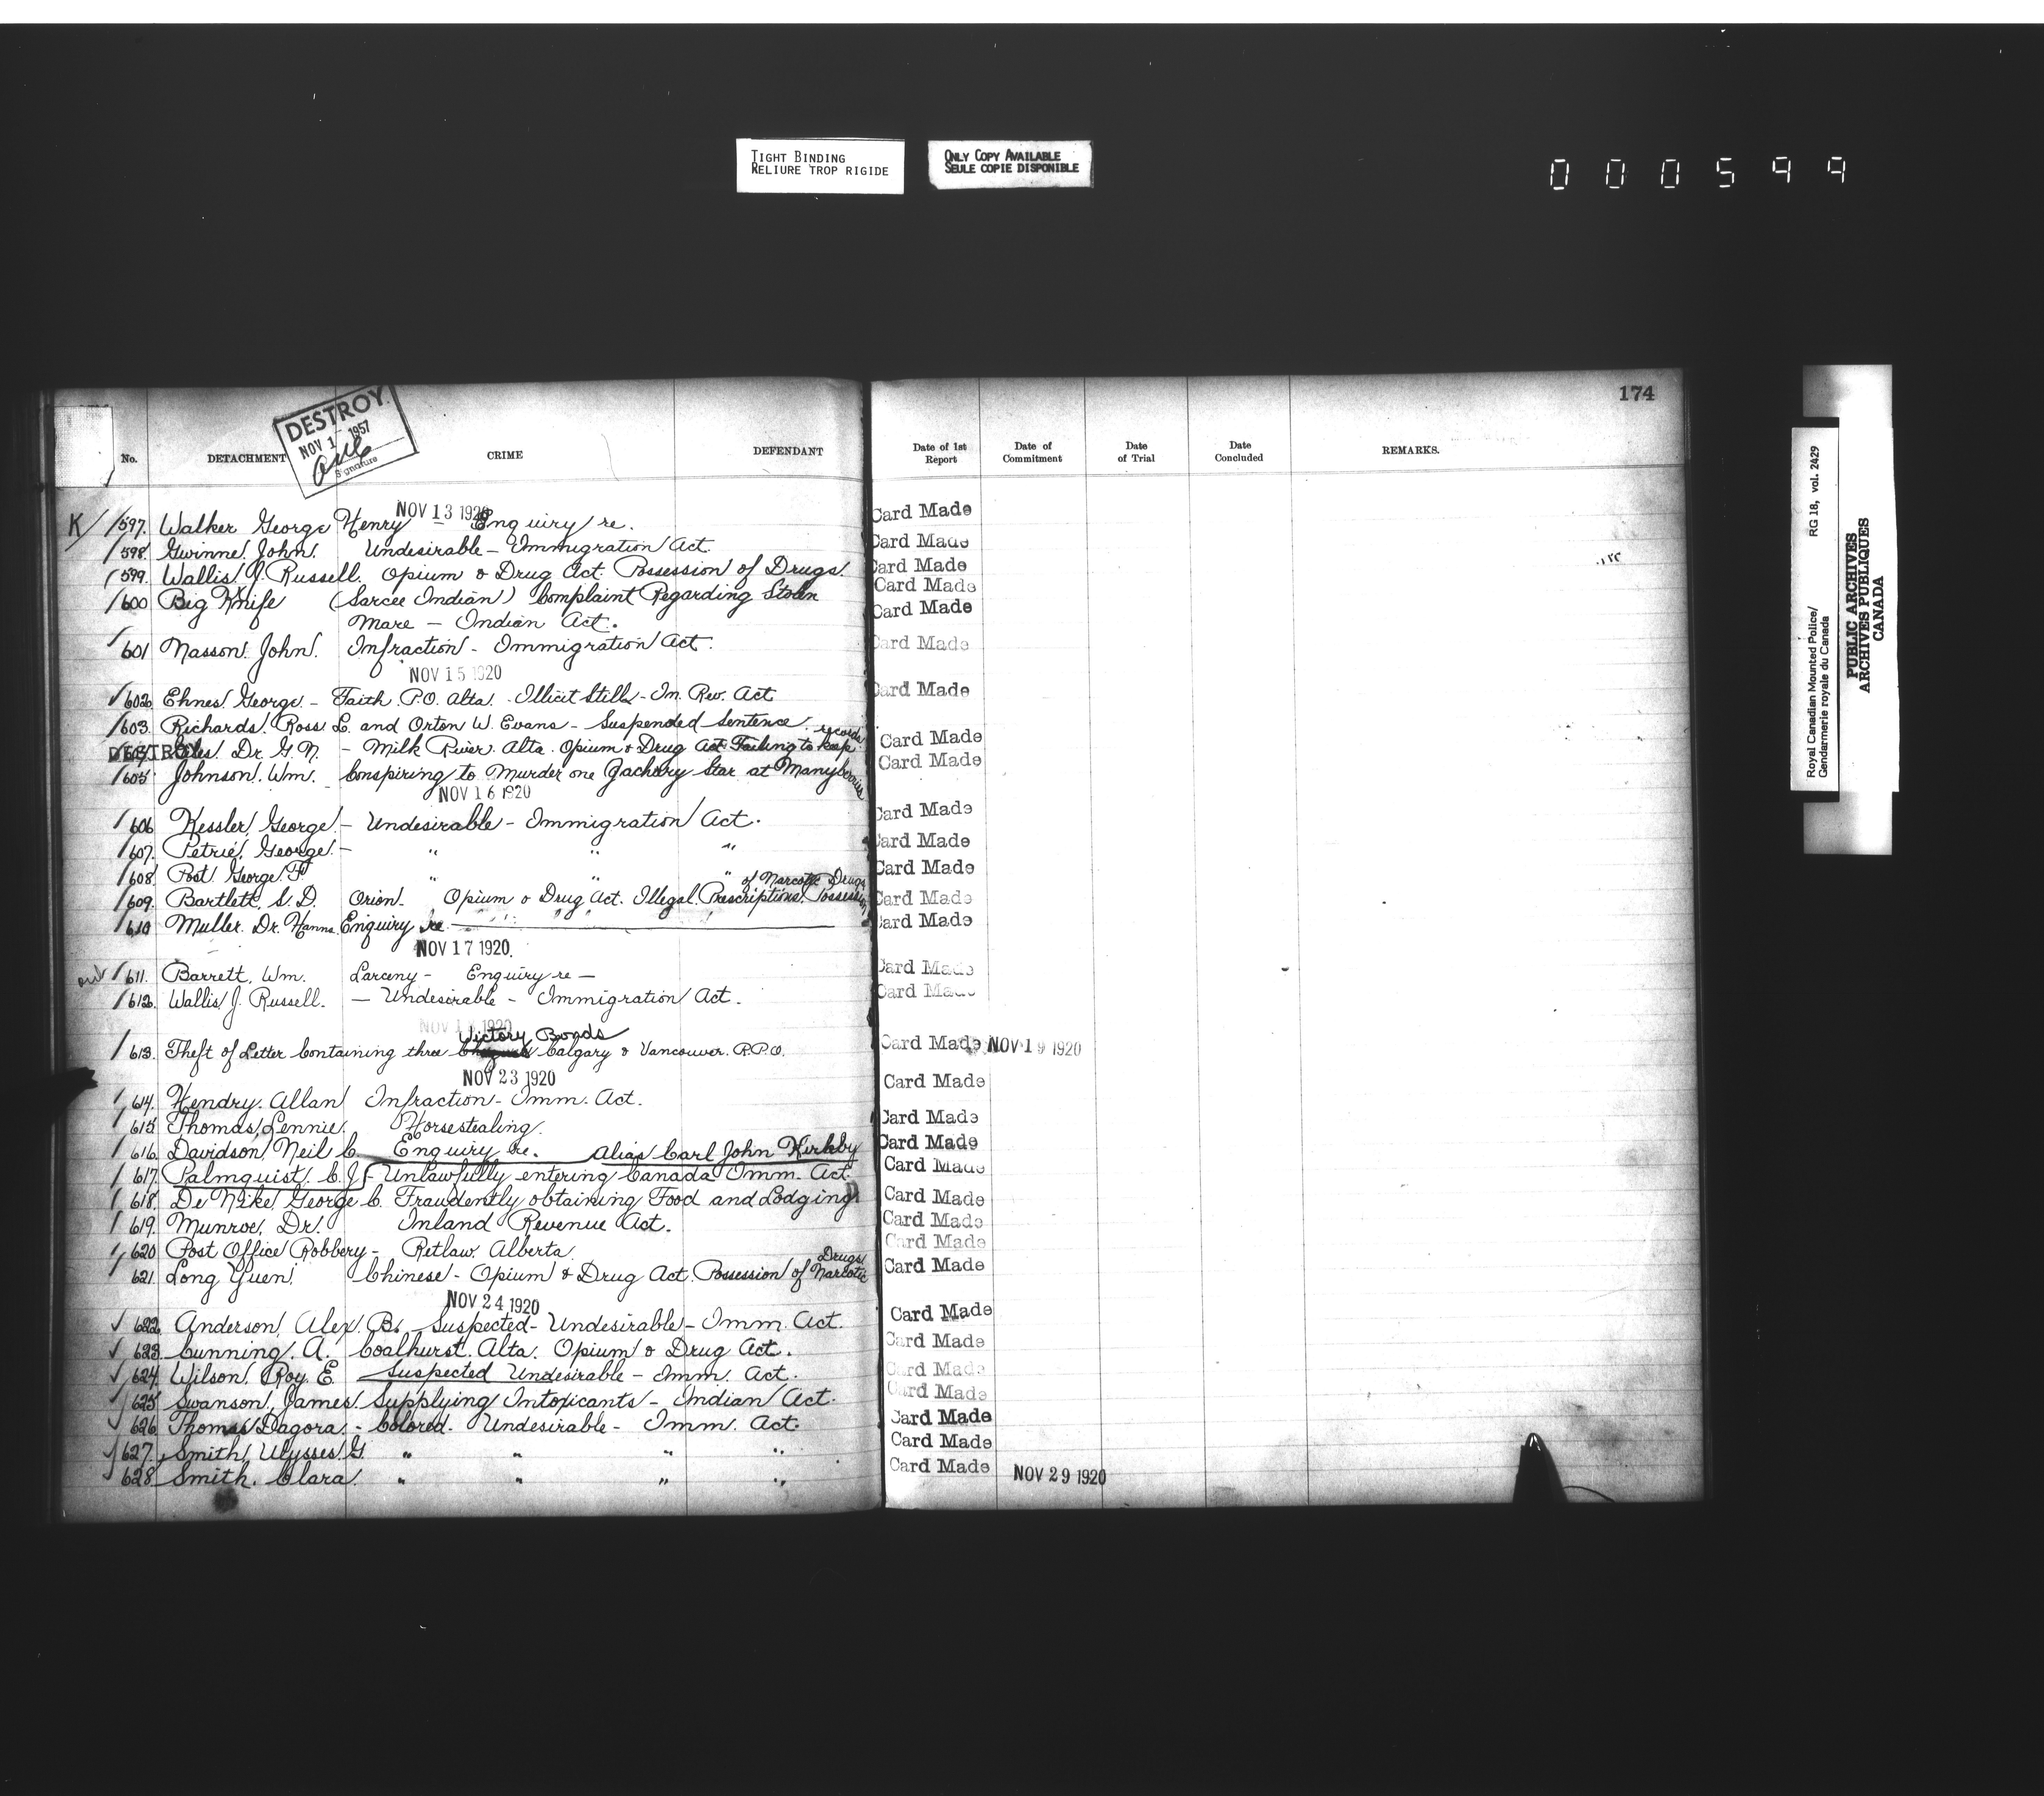 TIGHT BINDING
RELIURE TROP RIGIDE
ONLY COPY AVAILABLE
SEULE COPIE DISPONIBLE
000599
174
DESTROY
NOV 1 - 1957
Signature
No. DETACHMENT CRIME DEFENDANT Date of 1st Report Date of Commitment Date of Trial Date Concluded REMARKS.
NOV 13 1920
K/ 597. Walker George Henry - Enquiry re. Card Made
598. Gwinne John. Undesirable - Immigration Act. Card Made
599. Wallis J. Russell. Opium & Drug Act. Possession of Drugs. Card Made
Card Made
600 Big Knife (Sarcee Indian) Complaint Regarding Stolen Card Made
Mare - Indian Act.
601 Nasson. John. Infraction - Immigration Act. Card Made
NOV 15 1920
602. Ehnes George - Faith. P.O. Alta. Illicit Still - In. Rev. Act Card Made
603. Richards. Ross L. and Orton W. Evans - Suspended Sentence.
records
DESTROY Dr. G. N. - Milk River. Alta. Opium & Drug Act Failing to keep Card Made
605 Johnson. Wm. Conspiring to Murder one Zachary Star at Manyberries Card Made
NOV 16 1920
606 Kessler, George - Undesirable - Immigration Act. Card Made
607. Petrie, George. - " " " Card Made
608. Post George. F. " " " Card Made
of Narcotic Drugs
609. Bartlett, S. D. Orion. Opium & Drug Act. Illegal Prescriptions. Possession Card Made
610 Muller. Dr. Hanna. Enquiry re Card Made
NOV 17 1920.
611. Barrett, Wm. Larceny - Enquiry re - Card Made
612. Wallis J. Russell. - Undesirable - Immigration Act. Card Made
1920
Victory Bonds
613. Theft of Letter Containing three Calgary & Vancouver. R.P.O. Card Made NOV 19 1920
NOV 23 1920
614. Hendry. Allan Infraction - Imm. Act. Card Made
615 Thomas, Lennie. Horsestealing. Card Made
616. Davidson, Neil C. Enquiry re. Alias Carl John Kirkby Card Made
617. Palmquist, C. J. - Unlawfully entering Canada Imm. Act. Card Made
618. De Nike, George C. Fraudently obtaining Food and Lodging Card Made
619. Munroe, Dr. Inland Revenue Act. Card Made
620 Post Office Robbery - Retlaw. Alberta. Card Made
Drugs
621. Long Yuen. Chinese - Opium & Drug Act. Possession of Narcotic Card Made
NOV 24 1920
622. Anderson, Alex. B. Suspected - Undesirable - Imm. Act. Card Made
623. Cunning, A. Coalhurst. Alta. Opium & Drug Act. Card Made
624. Wilson, Roy. E. Suspected Undesirable - Imm. Act. Card Made
625 Swanson, James. Supplying Intoxicants - Indian Act. Card Made
626. Thomas Dagora - Colored. Undesirable - Imm. Act. Card Made
627. Smith, Ulysses. G. " " " " Card Made
628. Smith. Clara. " " " " Card Made NOV 29 1920
Royal Canadian Mounted Police/ RG 18, vol. 2429
Gendarmerie royale du Canada
PUBLIC ARCHIVES
ARCHIVES PUBLIQUES
CANADA